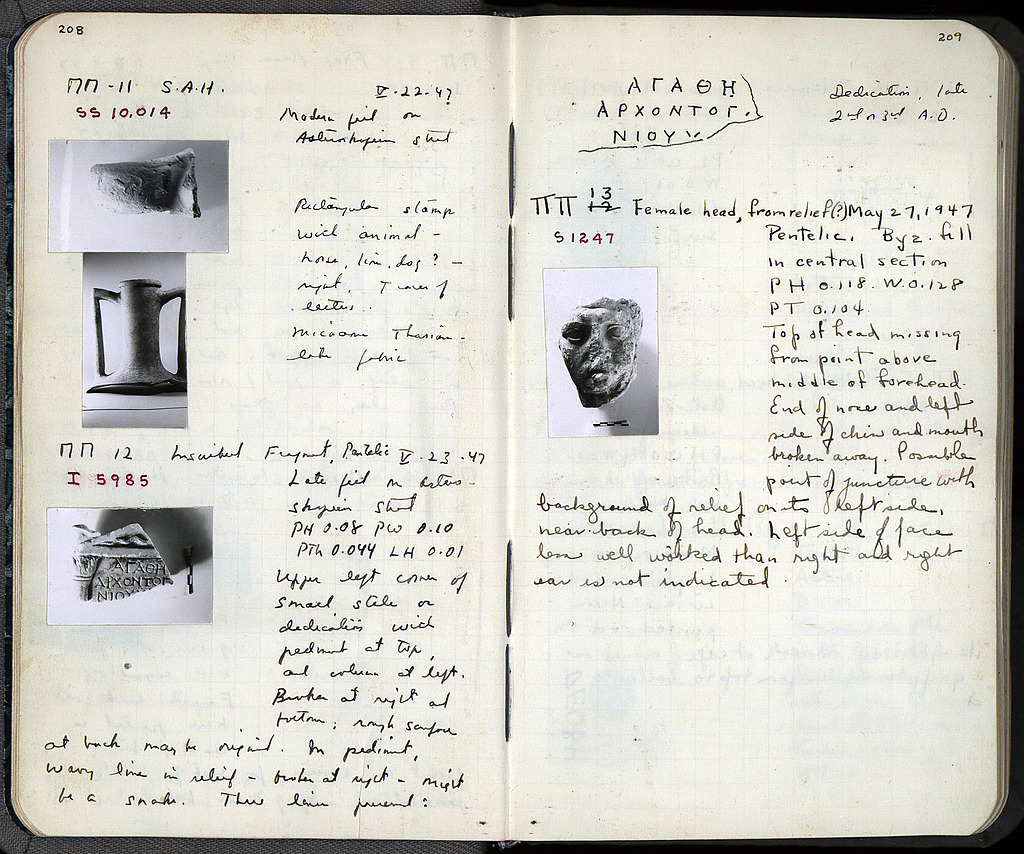 208
ΠΠ-11 S.A.H. V-22-47
SS 10,014
Modern fill on
Asteroskopeion street
Rectangular stamp
with animal -
horse, lion, dog? -
right. Traces of
letters.
Micaceous Thasian-
like fabric
ΠΠ 12 Inscribed Fragment, Pentelic V-23-47
I 5985
Late fill on Astero-
skopeion Street
PH 0.08 PW 0.10
PTh 0.044 LH 0.01
Upper left corner of
small stele or
dedication with
pediment at top,
and column at left.
Broken at right and
bottom; rough surface
at back may be original. In pediment,
wavy line in relief - broken at right - might
be a snake. Three lines preserved:
ΑΓΑΘΗ
ΑΡΧΟΝΤΟΓ
ΝΙΟΥ
209
ΑΓΑΘΗ
ΑΡΧΟΝΤΟΓ.
ΝΙΟΥ
Dedication, late
2nd or 3rd A.D.
ΠΠ 13 12 Female head, from relief(?) May 27, 1947
S 1247
Pentelic. Byz. fill
in central section
PH 0.118. W. 0.128
PT 0.104
Top of head missing
from point above
middle of forehead.
End of nose and left
side of chin and mouth
broken away. Possible
point of juncture with
background of relief on its left side,
near back of head. Left side of face
less well worked than right and right
ear is not indicated.